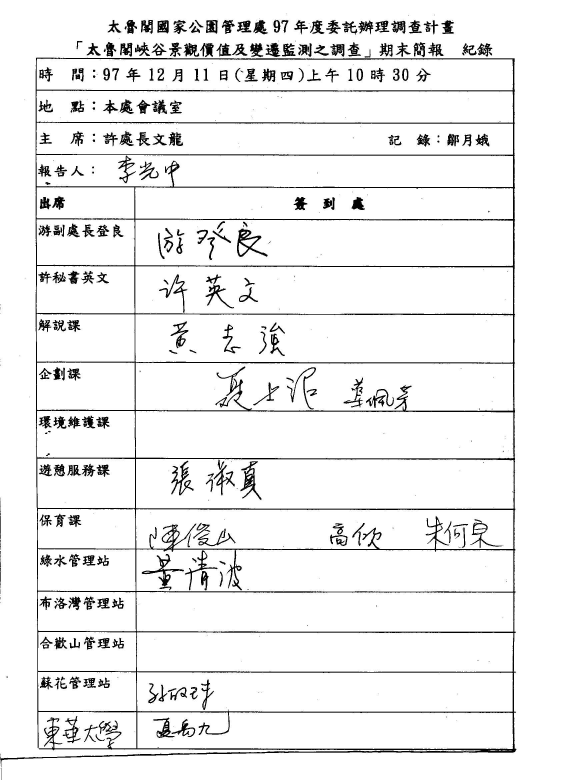 太魯閣國家公園管理處 97 年度委託辦理調查計畫
「太魯閣峽谷景觀價值及變遷監測之調查」期末簡報 紀錄
時 間：97 年 12 月 11 日(星期四)上午 10 時 30 分
地 點：本處會議室
主 席：許處長文龍 記 錄：鄒月娥
報告人： 李光中
出席 簽 到 處
游副處長登良 游登良
許秘書英文 许英文
解說課 黃志強
企劃課
環境維護課
遊憩服務課 張淑真
保育課 陳俊山 高欣 朱何宗
綠水管理站 清波
布洛灣管理站
合歡山管理站
蘇花管理站
東華大學 夏禹九